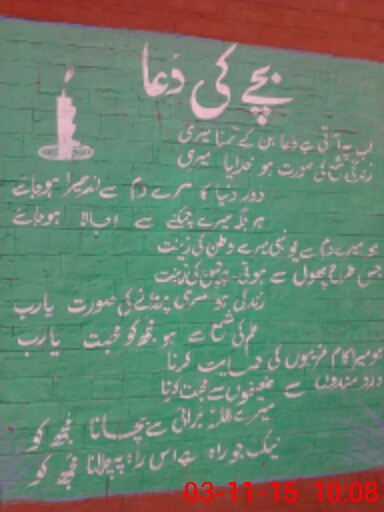 بچے کی دعا
لب پہ آتی ہے دعا بن کے تمنا میری
زندگی شمع کی صورت ہو خدایا میری
دور دنیا کا مرے دم سے اندھیرا ہوجائے
ہر جگہ میرے چمکنے سے اجالا ہوجائے
ہو میرے دم سے یونہی میرے وطن کی زینت
جس طرح پھول سے ہوتی ہے چمن کی زینت
زندگی ہو مری پروانے کی صورت یارب
علم کی شمع سے ہو مجھ کو محبت یارب
ہو میرا کام غریبوں کی حمایت کرنا
درد مندوں سے ضعیفوں سے محبت کرنا
میرے اللہ برائی سے بچانا مجھ کو
نیک جو راہ ہے اس راہ پہ چلانا مجھ کو
03-11-15 10:08